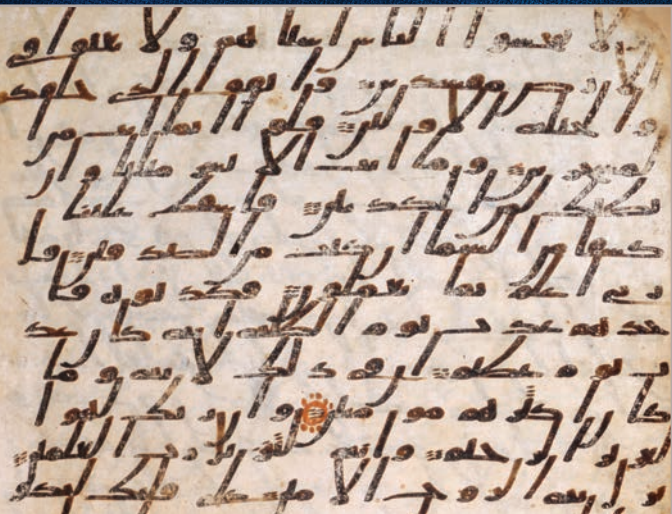 و لا تبخسوا الناس اشياهم و لا تعثوا في
الارض مفسدين و اتقوا الذي خلقكم
و الجبلة الاولين قالوا انما انت من
المسحرين و ما انت الا بشر مثلنا و ا
ن نظنك لمن الكذبين فاسقط علينا
كسفا من السما ان كنت من الصدقين قا
ل ربي اعلم بما تعملون فكذبوه فا
خذهم عذاب يوم الظلة انه كان عذ
اب يوم عظيم ان في ذلك لاية و ما
كان اكثرهم مومنين و ان ربك لهو
العزيز الرحيم و انه لتنزيل رب العلمين
نزل به الروح الامين على قلبك لتكو